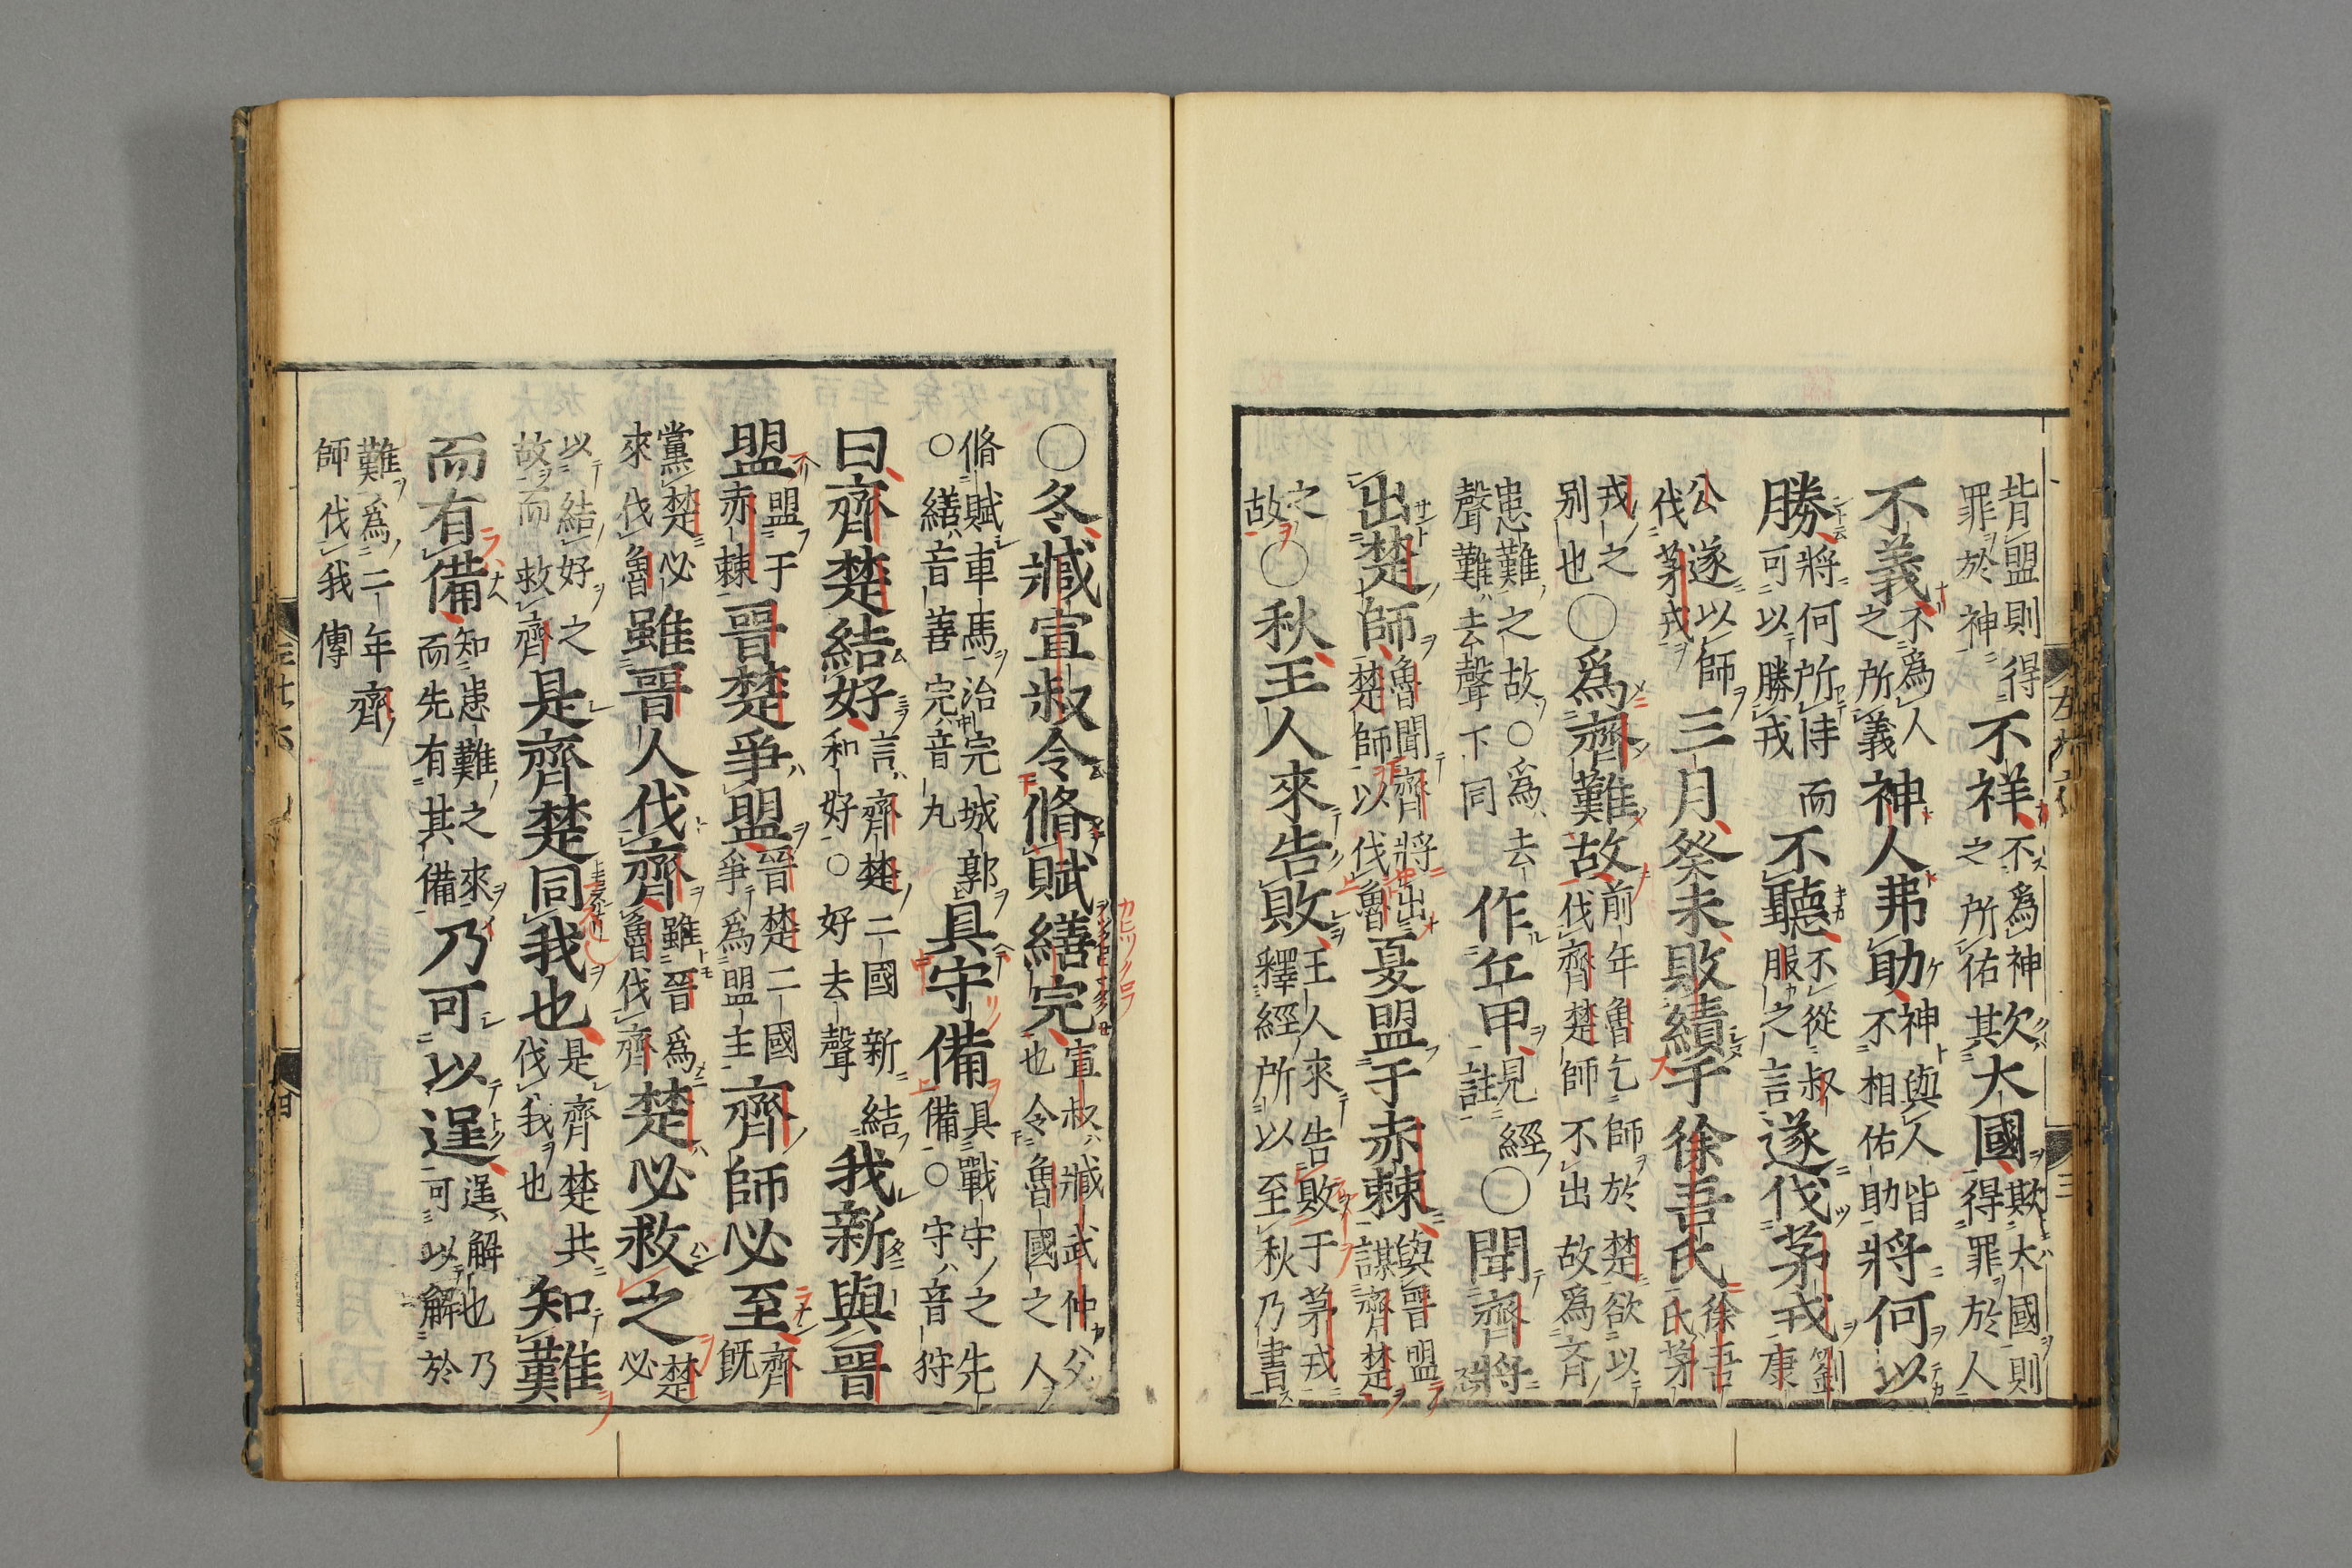 背盟則得罪於神不祥不為神之所佑欺大國欺大國則得罪於人
不義不為人之所義神人弗助神與人皆不相佑助將何以
勝將何所恃而可以勝戎不聽不從叔服之言遂伐茅戎劉康
公遂以師伐茅戎三月癸未敗績于徐吾氏徐吾氏茅
戎之別也〇為齊難故前年魯乞師於楚欲以伐齊楚師不出故為齊
患難之故〇為去聲難去聲下同作丘甲見經註〇聞齊將
出楚師魯聞齊將出楚師以伐魯夏盟于赤棘與晉盟謀齊楚
之故〇秋王人來告敗王人來告敗于茅戎釋經所以至秋乃書
〇冬臧宣叔令脩賦繕完宣叔臧武仲父也令魯國之人
脩賦車馬治完城郭〇繕音善完音丸具守備具戰守之先備〇守音狩
曰齊楚結好言齊楚二國新結和好〇好去聲我新與晉
盟盟于赤棘晉楚爭盟晉楚二國爭為盟主齊師必至齊既
黨楚必來伐魯雖晉人伐齊雖晉為魯伐齊楚必救之楚必
以結好之故而救齊是齊楚同我也是齊楚共伐我也知難
而有備知患難之來而先有其備乃可以逞逞解也乃可以解於
難為二年齊師伐我傳